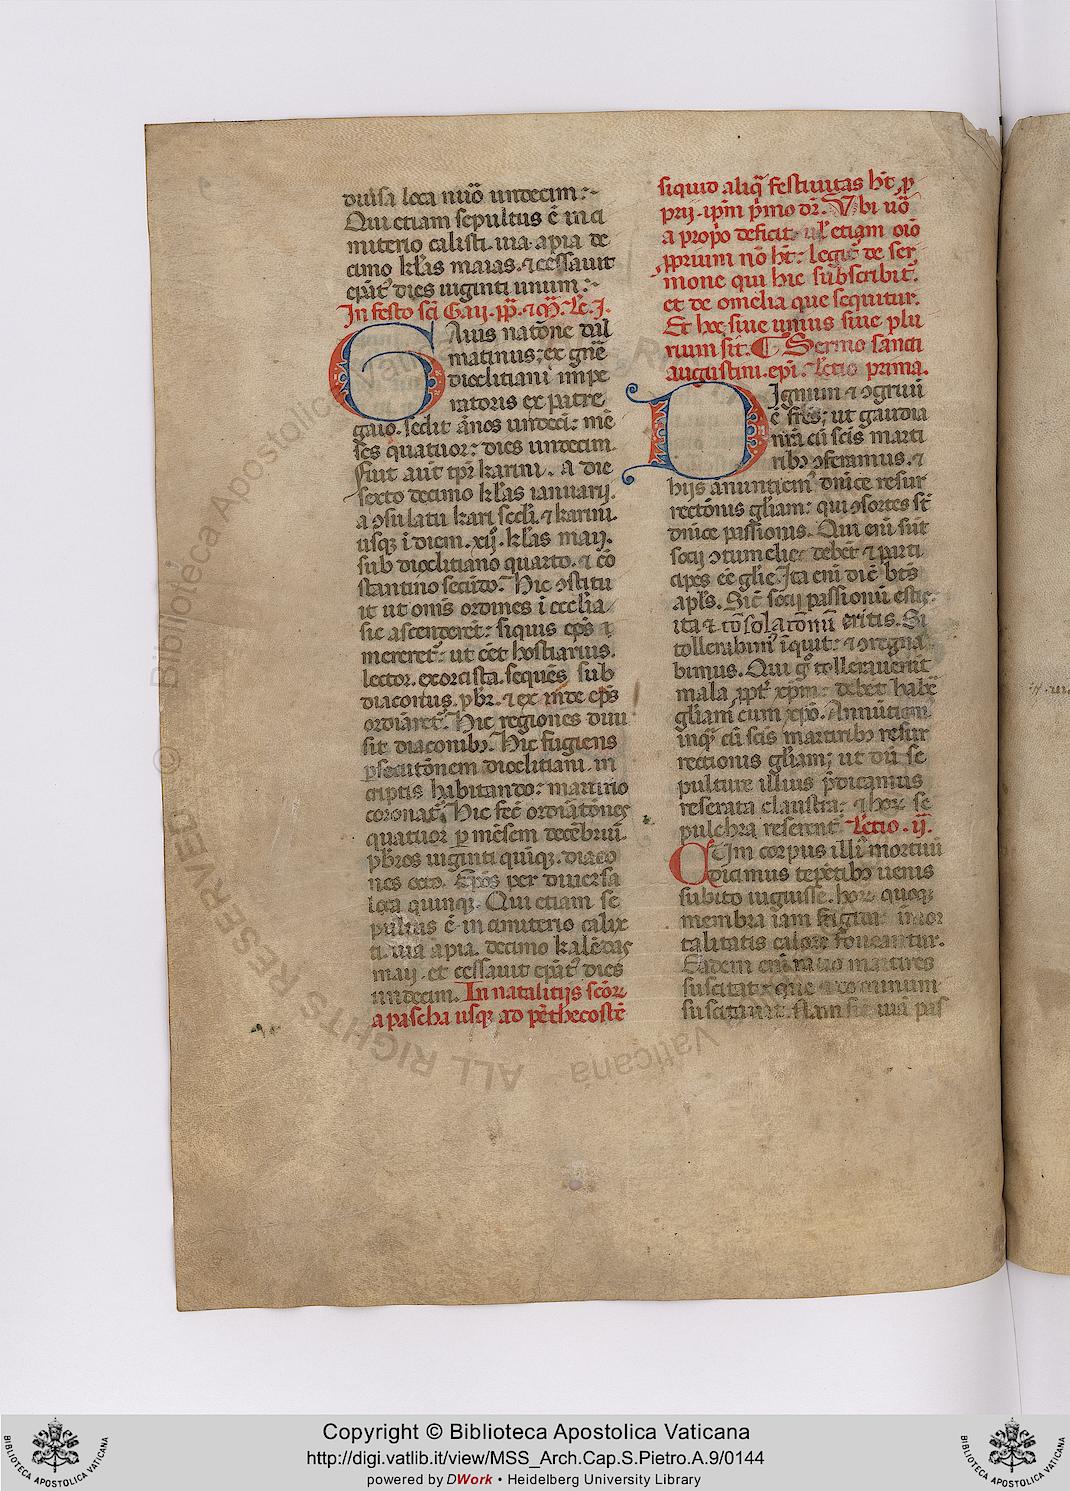 diuísa loca nūo undecim:~
Qui etiam sepultus ē in ci
miterio calisti. uia. apia de
cimo kl'as maias. ⁊ cessauit
ep̄at' dies uiginti unum:~
In festo sc̄i Gaii. pp̄. ⁊ m̄. Le. J.
Gaius natōne dal
matinus; ex gn̄e
dioclitiani impe
ratoris ex patre
gaio. sedit ānos undeci: mē
ses quatuor: dies undecim.
Fuit aut̄ tp̄r karini. a die
sexto decimo kl'as ianuarij.
a ɔsulatu kari sc̄di. ⁊ karini.
usqꝫ ī diem. xij. kl'as maij.
sub dioclitiano quarto. ⁊ cō
stantino secūdo. Hic ɔstitu
it ut om̄s ordines ī eccl'ia
sic ascenderēt: siquis ep̄s
mereret': ut eēt hostiarius.
lector. exorcista. sequēs sub
diaconus. pb̄r. ⁊ exinde ep̄s
ordīaret'. Hic regiones diui
sit diaconibꝫ. Hic fugiens
ꝑsecutōnem dioclitiani. in
criptis habitando: martirio
coronat'. Hic fec̄ ordīatōnes
quatuor ꝑ mēsem decēbriū.
pb̄ros uiginti quīqꝫ. diaco
nes octo. Ep̄os per diuersa
loca quinqꝫ. Qui etiam se
pultus ē in cimiterio calix
ti. uia apia. decimo kalēdas
maij. et cessauit ep̄at' dies
undecim. In natalitijs sc̄oꝝ
a pascha usqꝫ ad pēthecostē
siquid aliq̄ festiuitas h̄t ꝓ
prij. ip̄m p̄mo dr̄. Vbi uō
a propo deficit. ul' etiam oīo
ꝓprium nō h̄t: legit' de ser
mone qui hic subscribit'.
et de omelia que sequitur.
Et hec siue unius siue plu
rium sit. ¶ Sermo sancti
augustini. ep̄i. Lectio prima.
Dignum ⁊ ɔgruū
ē fr̄es; ut gaudia
nr̄a cū sc̄is marti
ribꝫ ɔferamus. ⁊
hijs anuntiem' dn̄ice resur
rectōnis gl'iam: qui ɔsortes st̄
dn̄ice passionis. Qui eni sūt
socij ɔtumelie: debēt ⁊ parti
cipes eē gl'ie. Ita eni dic̄ bt̄s
apl's. Sic̄ socij passionū estis:
ita ⁊ cōsolatōnū eritis. Si
tollerabim' īquit: ⁊ ɔregna
bimus. Qui g° tollerauerūt
mala ꝓpt' xp̄m: debēt habē
gl'iam cum xp̄o. Annūtiem'
inqꝫ cū sc̄is martiribꝫ resur
rectionis gl'iam; ut dū se
pulture illius p̄dicamus
reserata claustra: ⁊ hoꝝ se
pulchra reserent'. Lectio. ij.
Cum corpus illi' mortuū
dicimus tepētibꝫ uenis
subito uiguisse. hoꝝ quoqꝫ
membra iam frigida: inmor
talitatis calore foueantur.
Eadem eni ratio martires
suscitat: que ⁊ dominum
suscitauit. Nam sic uiā pas
Copyright © Biblioteca Apostolica Vaticana
http://digi.vatlib.it/view/MSS_Arch.Cap.S.Pietro.A.9/0144
powered by DWork • Heidelberg University Library